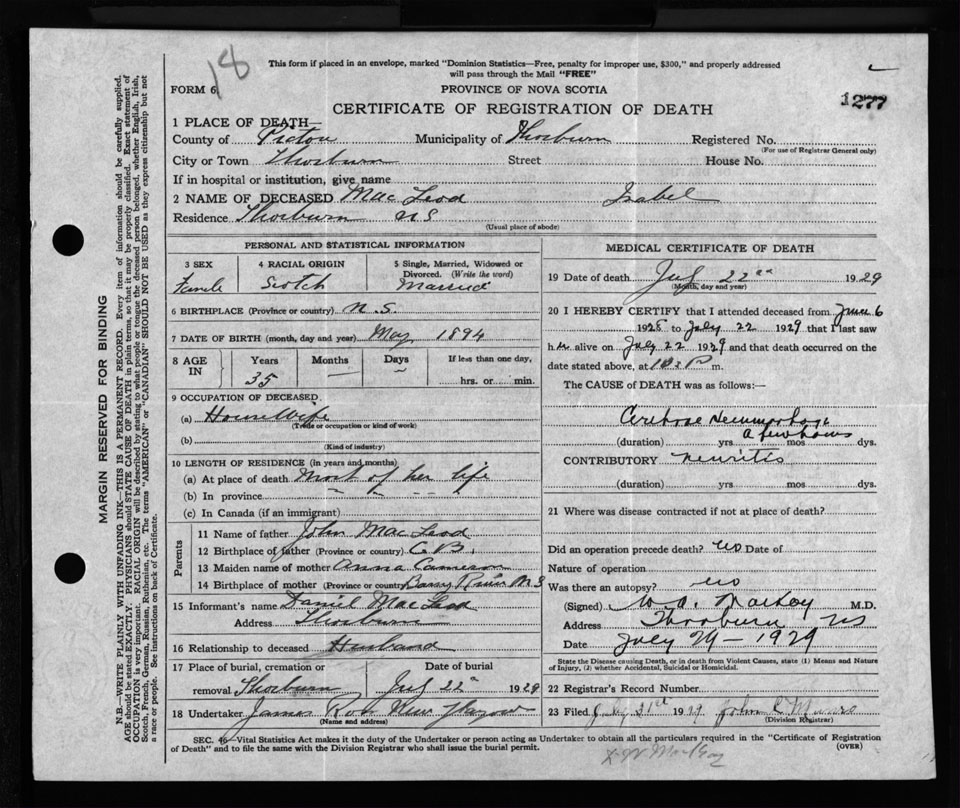 18
This form if placed in an envelope, marked "Dominion Statistics—Free, penalty for improper use, $300," and properly addressed
will pass through the Mail "FREE"
FORM 6
PROVINCE OF NOVA SCOTIA
1277
CERTIFICATE OF REGISTRATION OF DEATH
1 PLACE OF DEATH—
County of Pictou Municipality of Thorburn Registered No.
(For use of Registrar General only)
City or Town Thorburn Street House No.
If in hospital or institution, give name
2 NAME OF DECEASED Mac Leod Isabel
Residence Thorburn N S
(Usual place of abode)
MARGIN RESERVED FOR BINDING
N.B.—WRITE PLAINLY WITH UNFADING INK—THIS IS A PERMANENT RECORD. Every item of information should be carefully supplied.
AGE should be stated EXACTLY. PHYSICIANS should STATE CAUSE OF DEATH in plain terms, so that it may be properly classified. Exact statement of
OCCUPATION is very important. RACIAL ORIGIN will be described by stating to what people or tongue the deceased person belonged, whether English, Irish,
Scotch, French, German, Russian, Ruthenian, etc. The terms "AMERICAN" or "CANADIAN" SHOULD NOT BE USED as they express citizenship but not
a race or people. See instructions on back of Certificate.
PERSONAL AND STATISTICAL INFORMATION
3 SEX 4 RACIAL ORIGIN 5 Single, Married, Widowed or
Divorced. (Write the word)
Female Scotch Married
6 BIRTHPLACE (Province or country) N. S.
7 DATE OF BIRTH (month, day and year) May 1894
8 AGE IN Years Months Days If less than one day,
35 — — hrs. or min.
9 OCCUPATION OF DECEASED
(a) House Wife
(Trade or occupation or kind of work)
(b)
(Kind of industry)
10 LENGTH OF RESIDENCE (in years and months)
(a) At place of death Most of her life
(b) In province " " " "
(c) In Canada (if an immigrant)
Parents
11 Name of father John Mac Leod
12 Birthplace of father (Province or country) C B.
13 Maiden name of mother Anna Cameron
14 Birthplace of mother (Province or country) River N S
15 Informant's name Daniel Mac Leod
Address Thorburn
16 Relationship to deceased Husband
17 Place of burial, cremation or Date of burial
removal Thorburn July 22 1929
18 Undertaker James New Glasgow
(Name and address)
MEDICAL CERTIFICATE OF DEATH
19 Date of death July 22nd 1929
(Month, day and year)
20 I HEREBY CERTIFY that I attended deceased from June 6
1928 to July 22 1929 that I last saw
her alive on July 22 1929 and that death occurred on the
date stated above, at 10 P m.
The CAUSE of DEATH was as follows:—
Hemmorhage
a few hours
(duration) yrs mos dys.
CONTRIBUTORY Neuritis
(duration) yrs mos dys.
21 Where was disease contracted if not at place of death?
Did an operation precede death? No Date of
Nature of operation
Was there an autopsy? No
(Signed) W. A. MacKay M.D.
Address Thorburn NS
Date July 29 – 1929
State the Disease causing Death, or in death from Violent Causes, state (1) Means and Nature
of Injury, (2) whether Accidental, Suicidal or Homicidal.
22 Registrar's Record Number
23 Filed July 31st 1929 John C Munro
(Division Registrar)
SEC. 46—Vital Statistics Act makes it the duty of the Undertaker or person acting as Undertaker to obtain all the particulars required in the "Certificate of Registration
of Death" and to file the same with the Division Registrar who shall issue the burial permit. (OVER)